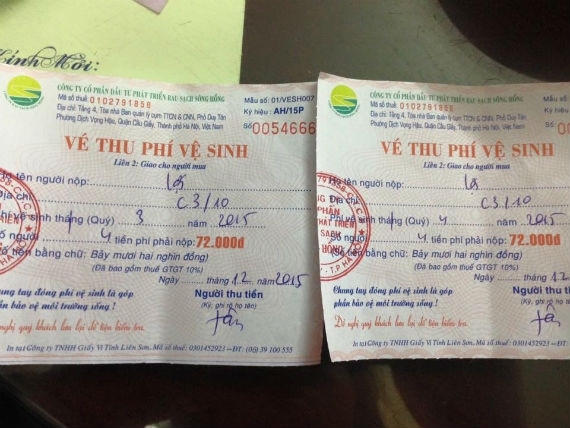 Kính Mời:
CÔNG TY CỔ PHẦN ĐẦU TƯ PHÁT TRIỂN RAU SẠCH SÔNG HỒNG
Mã số thuế: 0102791858
Địa chỉ: Tầng 4, Tòa nhà Ban quản lý cụm TTCN & CNN, Phố Duy Tân
Phường Dịch Vọng Hậu, Quận Cầu Giấy, Thành phố Hà Nội, Việt Nam
Mẫu số: 01/VESH007
Ký hiệu: AH/15P
Số 0054666
VÉ THU PHÍ VỆ SINH
Liên 2: Giao cho người mua
Họ tên người nộp:
Địa chỉ: C3/10
Phí vệ sinh tháng (Quý) 3 năm 2015
Số người 4 tiền phí phải nộp: 72.000đ
(Số tiền bằng chữ: Bảy mươi hai nghìn đồng)
(Đã bao gồm thuế GTGT 10%)
Ngày tháng 12 2015
Chung tay đóng phí vệ sinh là góp
phần bảo vệ môi trường sống!
Người thu tiền
(Ký, ghi rõ họ tên)
Đề nghị quý khách lưu lại để tiện kiểm tra.
In tại Công ty TNHH Giấy Vi Tính Liên Sơn. Mã số thuế: 0301452923 - ĐT: (08) 39 100 555
CÔNG TY CỔ PHẦN ĐẦU TƯ PHÁT TRIỂN RAU SẠCH SÔNG HỒNG
Mã số thuế: 0102791858
Địa chỉ: Tầng 4, Tòa nhà Ban quản lý cụm TTCN & CNN, Phố Duy Tân
Phường Dịch Vọng Hậu, Quận Cầu Giấy, Thành phố Hà Nội, Việt Nam
VÉ THU PHÍ VỆ SINH
Liên 2: Giao cho người mua
Họ tên người nộp:
Địa chỉ: C3/10
Phí vệ sinh tháng (Quý) 4 năm 2015
Số người 4 tiền phí phải nộp: 72.000đ
(Số tiền bằng chữ: Bảy mươi hai nghìn đồng)
(Đã bao gồm thuế GTGT 10%)
Ngày tháng 12
Chung tay đóng phí vệ sinh là góp
phần bảo vệ môi trường sống!
Người thu
(Ký, ghi rõ họ
Đề nghị quý khách lưu lại để tiện kiểm tra.
In tại Công ty TNHH Giấy Vi Tính Liên Sơn. Mã số thuế: 0301452923 - ĐT: